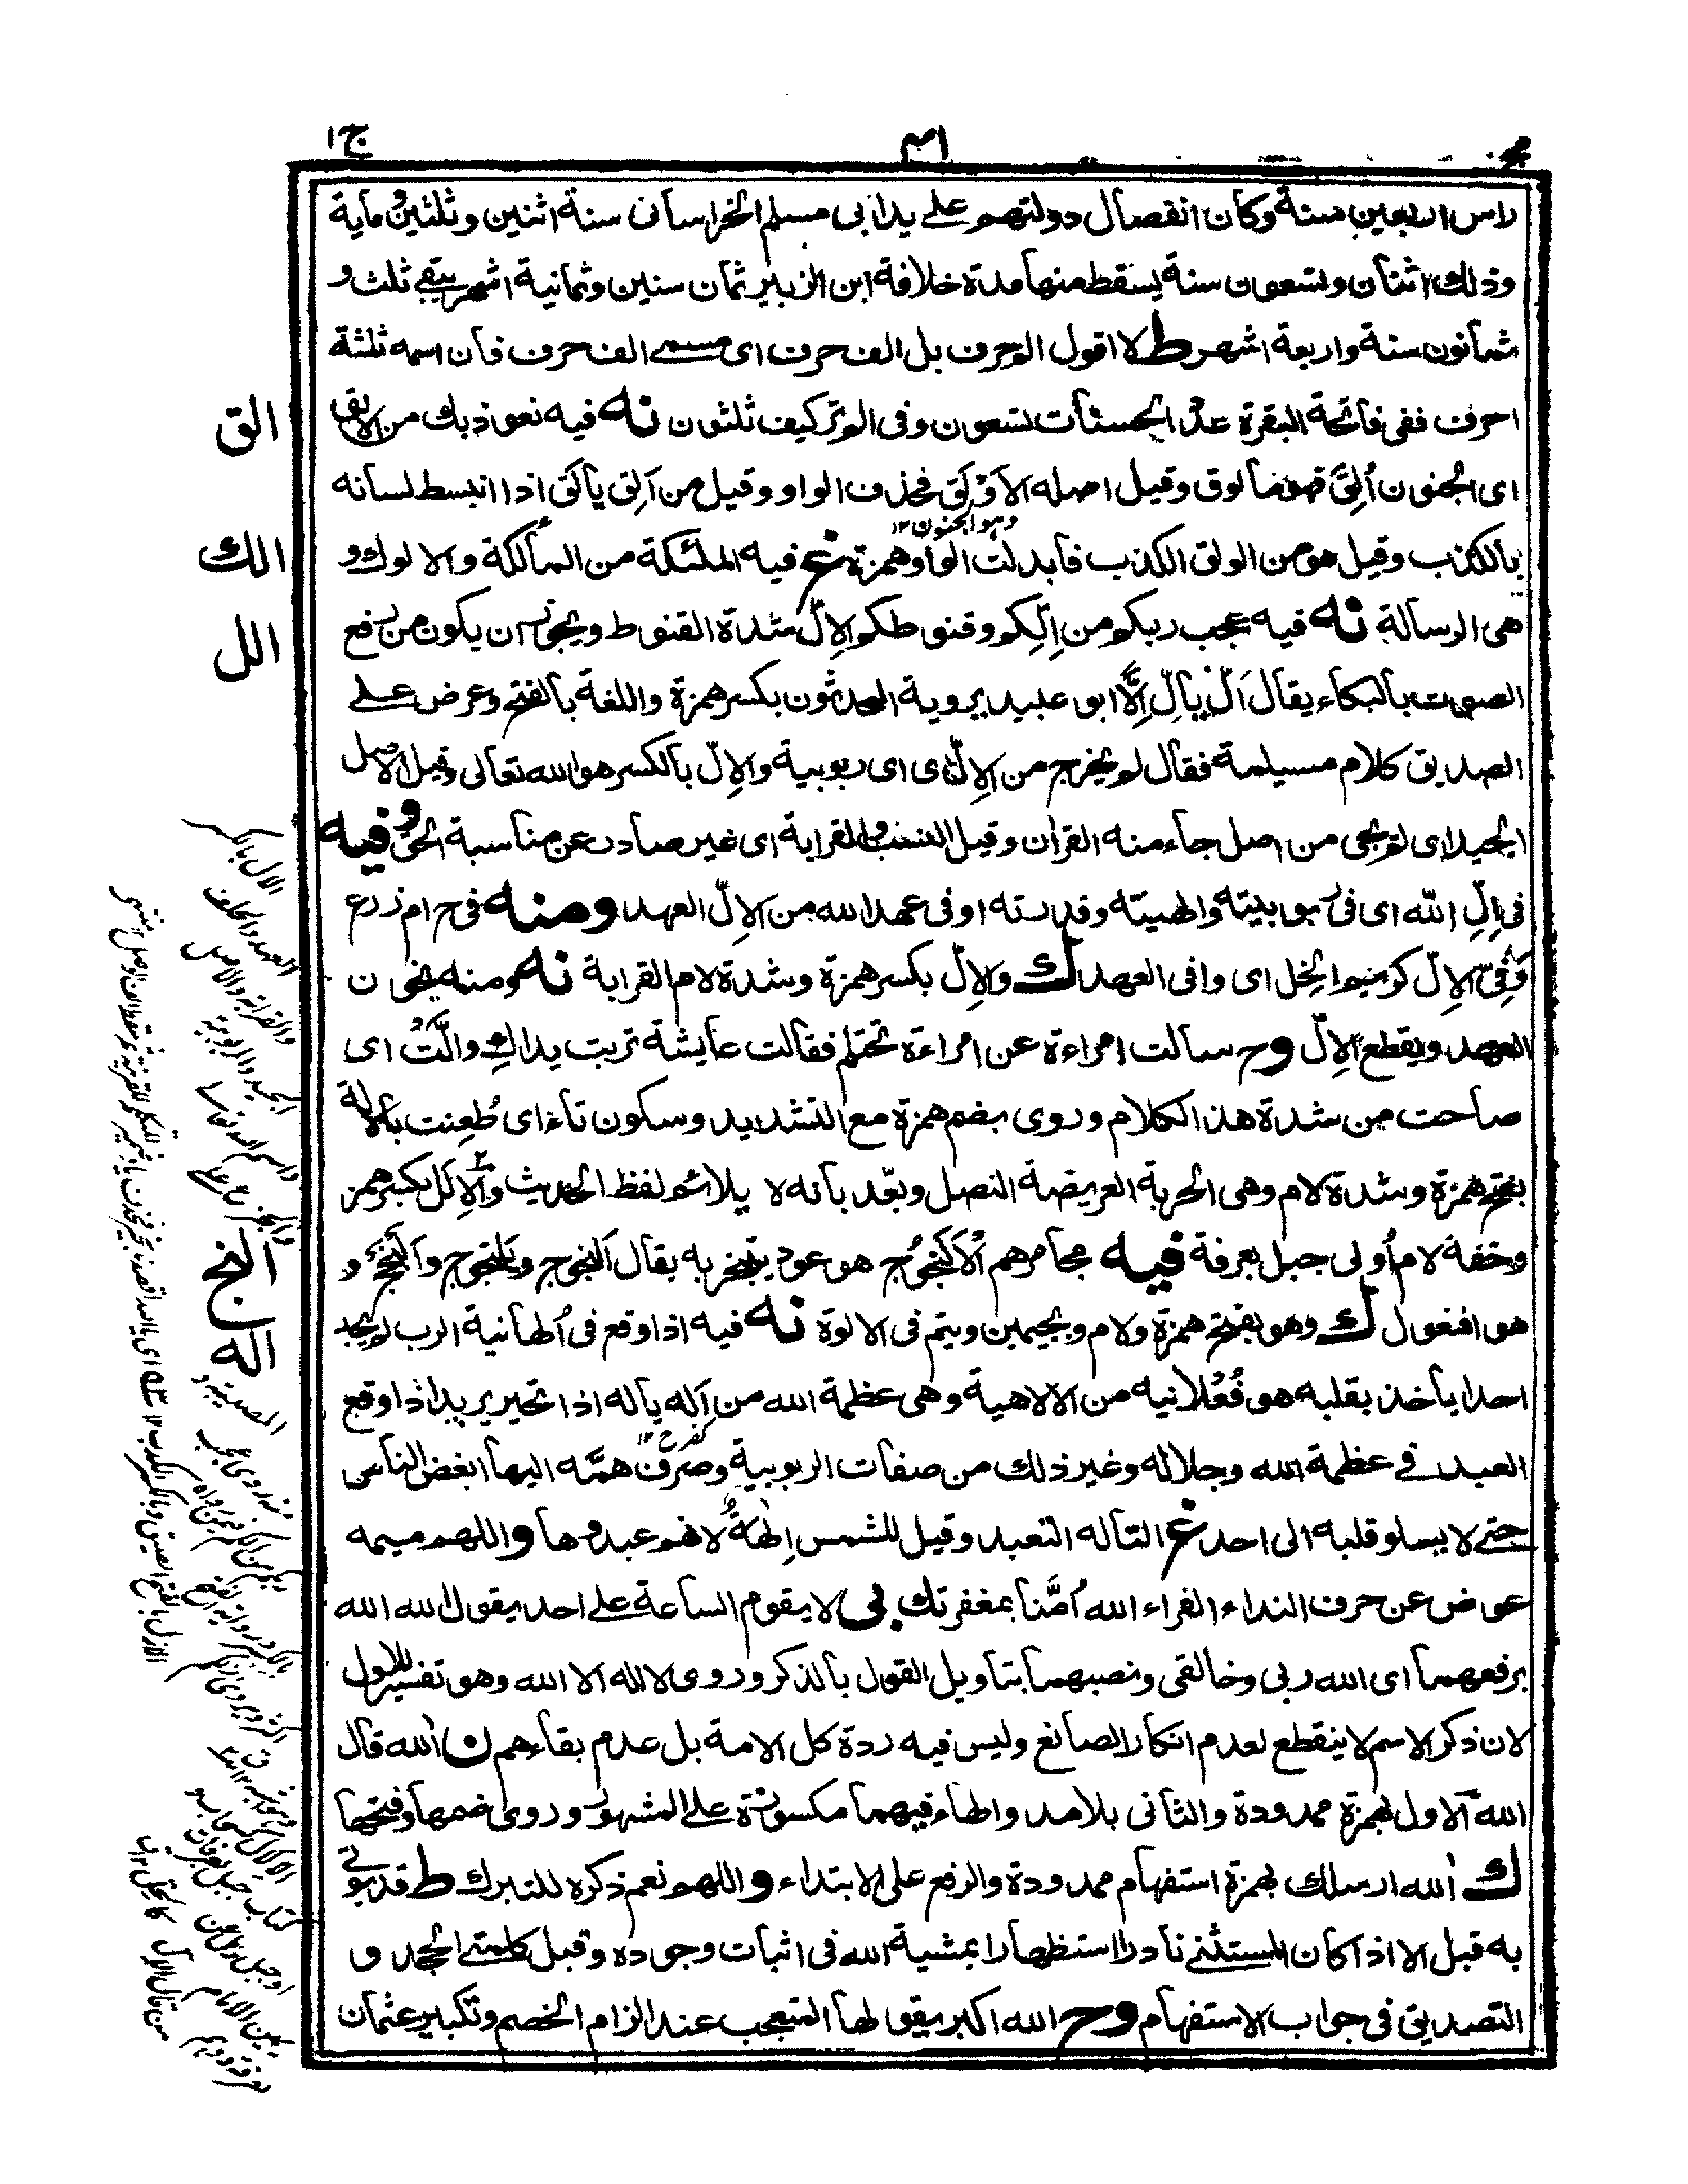 ج ١
٤١
راس اربعين سنة وكان انفصال دولتهم على يد ابي مسلم الخراساني سنة اثنين وثلثين وماية
وذلك اثنان وتسعون سنة يسقط منها مدة خلافة ابن الزبير ثمان سنين وثمانية اشهر يبقى ثلث و
ثمانون سنة واربعة اشهر ط لا اقول الم حرف بل الف حرف اى مسمى الف حرف فان اسمه ثلثة
احرف ففى فاتحة البقرة عدّ الحسنات تسعون وفى الم تر كيف ثلثون نه فيه نعوذ بك من الالق
اى الجنون اُلِقَ فهو مألوق وقيل اصله الاَوْلَق فحذف الواو وقيل من اَلِق يألَق اذا انبسط لسانه
وهو الجنون ١٢
بالكذب وقيل هو من الولق الكذب فابدلت الواو همزة غ فيه الملئكة من المألكة والالوك و
هى الرسالة نه فيه عجب ربكم من اِلّكم وقنوطكم الاِلّ شدة القنوط ويجوز ان يكون من رفع
الصوت بالبكاء يقال اَلّ يألّ اِلًّا ابو عبيد يرويه المحدثون بكسر همزة واللغة بالفتح وعرض على
الصديق كلام مسيلمة فقال لم يخرج من الاِلّ اى ربوبية والاِلّ بالكسر هو الله تعالى وقيل الاصل
الجيد اى لم يجى من اصل جاء منه القران وقيل النسب والقرابة اى غير صادر عن مناسبة الحق وفيه
فى اِلِّ الله اى فى ربوابيته والهيته وقدرته او فى عهد الله من الاِلّ العهد ومنه فى ح ام زرع
وَفِىّ الاِلّ كريم الخل اى وافى العهد ك والاِلّ بكسر همزة وشدة لام القرابة نه ومنه يخون
العهد ويقطع الاِلّ وح سالت امراءة عن امراءة تحتلم فقالت عايشة تربت يداك واَلَّتْ اى
صاحت من شدة هذا الكلام وروى بضم همزة مع التشديد وسكون تاء اى طُعِنت بالالة
بفتح همزة وشدة لام وهى الحربة العريضة النصل وبعّد بانه لا يلائم لفظ الحديث والاِلَل بكسر همز
وخفة لام اُولى جبل بعرفة فيه مجامرهم الاَلَنْجُوج هو عود يتبخر به يقال اَلنجوج ويَلنجوج واَلَنجج و
هو افنعول ك وهو بفتح همزة ولام وبجيمين ويتم فى الالوة نه فيه اذا وقع فى اُلهانية الرب لم يجد
احدا ياخذ بقلبه هو فُعْلانيه من الالاهية وهى عظمة الله من اَلِه يأله اذا تحير يريد اذا وقع
كفرح ١٢
العبد فى عظمة الله وجلاله وغير ذلك من صفات الربوبية وصرف همّه اليها ابغض الناس
حتى لا يسلو قلبه الى احد غ التاله التعبد وقيل للشمس اِلهَةٌ لانهم عبدوها واللهم ميمه
عوض عن حرف النداء الفراء الله اُمَّنا بمغفرتك بى لا يقوم الساعة على احد يقول الله الله
برفعهما اى الله ربى وخالقى ونصبهما بتاويل القول بالذكر وروى لا اله الا الله وهو تفسير للاول
لان ذكر الاسم لا ينقطع لعدم انكار الصانع وليس فيه ردة كل الامة بل عدم بقاءهم ن آلله قال
الله الاول بهمزة ممدودة والثانى بلا مد والهاء فيهما مكسورة على المشهور وروى ضمها وفتحها
ك آلله ارسلك بهمزة استفهام ممدودة والرفع على الابتداء و اللهم نعم ذكره للتبرك ط قد يوتى
به قبل الا اذا كان المستثنى نادرا استظهارا بمشية الله فى اثبات وجوده وقبل كلمتى الجحد و
التصديق فى جواب الاستفهام وح الله اكبر يقولها المتعجب عند الزام الخصم وتكبير عثمان
الق
الك
الل
الال بالكسر
العهد والحلف
والقرابة والاصل
الجيد والربوبية
واسم الله تعالى
النج
اله